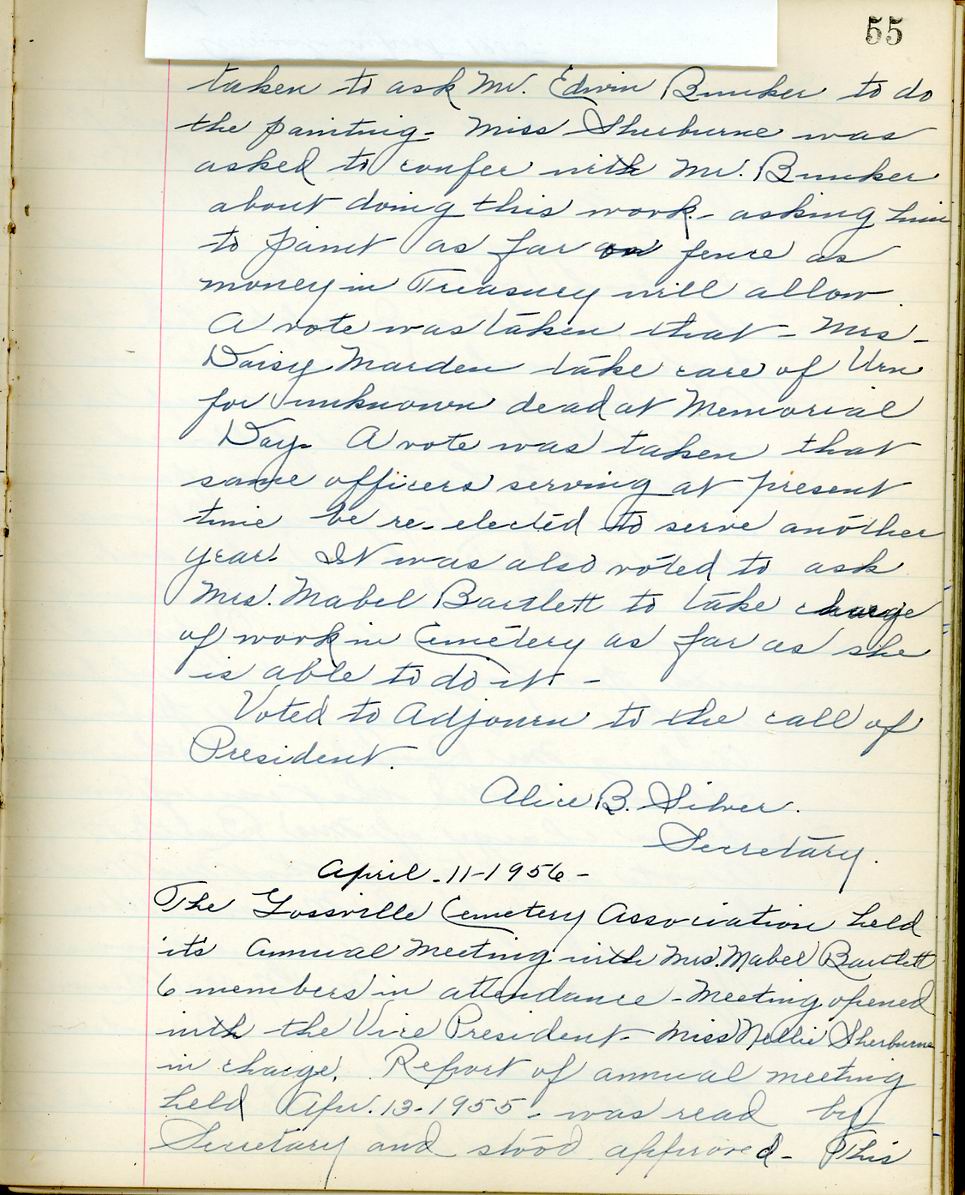 55
taken to ask Mr. Edwin Bunker to do
the painting - Miss Sherburne was
asked to confer with Mr. Bunker
about doing this work - asking him
to paint as far on fence as
money in Treasury will allow
A vote was taken that - Mrs -
Daisy Marden take care of Urn
for unknown dead at Memorial
Day. A vote was taken that
same officers serving at present
time be re-elected to serve another
year. It was also voted to ask
Mrs. Mabel Bartlett to take charge
of work in Cemetery as far as she
is able to do it -
Voted to Adjourn to the call of
President.
Alice B. Silver.
Secretary.
April - 11 - 1956 -
The Gossville Cemetery Association held
it's Annual Meeting with Mrs. Mabel Bartlett
6 members in attendance - Meeting opened
with the Vice President - Miss Nellie Sherburne
in charge. Report of annual meeting
held Apr. 13 - 1955 - was read by
Secretary and stood approved - This